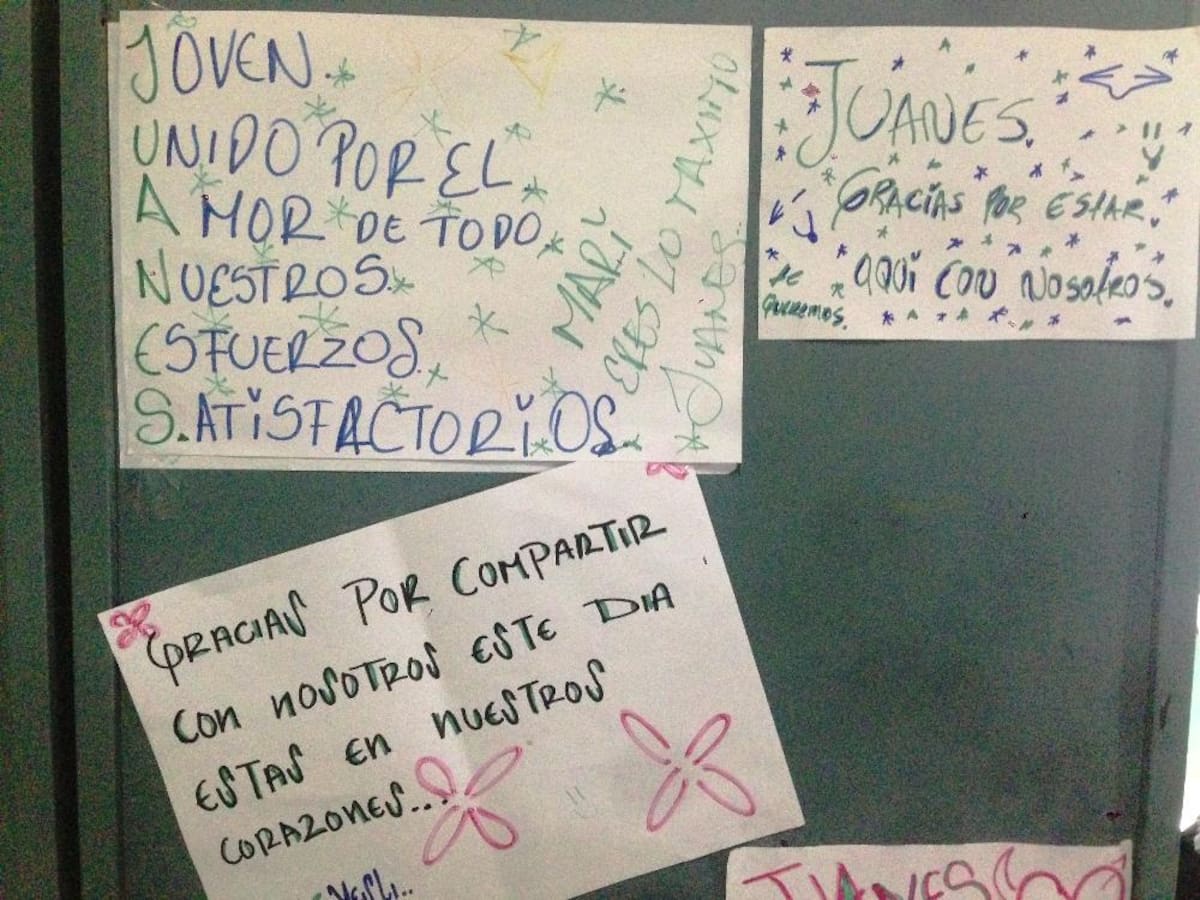 JOVEN.
UNIDO POR EL
AMOR DE TODO
NUESTROS
ESFUERZOS.
S.ATISFACTORIOS.
MARI
ERES LO MAXIMO
JUANES..
JUANES.
GRACIAS POR ESTAR.
AQUI CON NOSOTROS.
TE
QUEREMOS.
GRACIAS POR COMPARTIR
CON NOSOTROS ESTE DIA
ESTAS EN NUESTROS
CORAZONES...
JUANES